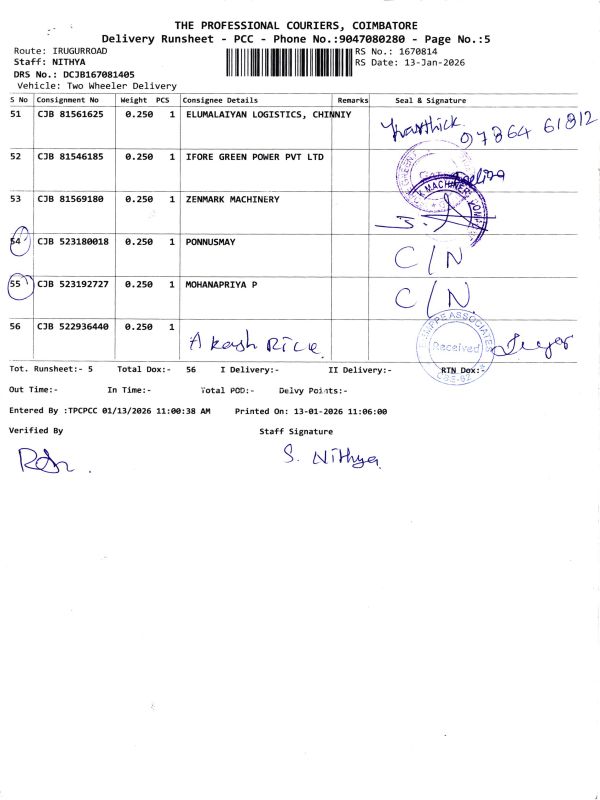 THE PROFESSIONAL COURIERS, COIMBATORE
Delivery Runsheet - PCC - Phone No.:9047080280 - Page No.:5
Route: IRUGURROAD RS No.: 1670814
Staff: NITHYA RS Date: 13-Jan-2026
DRS No.: DCJB167081405
Vehicle: Two Wheeler Delivery
S No Consignment No Weight PCS Consignee Details Remarks Seal & Signature
51 CJB 81561625 0.250 1 ELUMALAIYAN LOGISTICS, CHINNIY Karthick 07864 61812
52 CJB 81546185 0.250 1 IFORE GREEN POWER PVT LTD
53 CJB 81569180 0.250 1 ZENMARK MACHINERY
54 CJB 523180018 0.250 1 PONNUSMAY C/N
55 CJB 523192727 0.250 1 MOHANAPRIYA P C/N
56 CJB 522936440 0.250 1 Akash Rice Received
Tot. Runsheet:- 5 Total Dox:- 56 I Delivery:- II Delivery:- RTN Dox:-
Out Time:- In Time:- Total POD:- Delvy Points:-
Entered By :TPCPCC 01/13/2026 11:00:38 AM Printed On: 13-01-2026 11:06:00
Verified By Staff Signature
S. Nithya